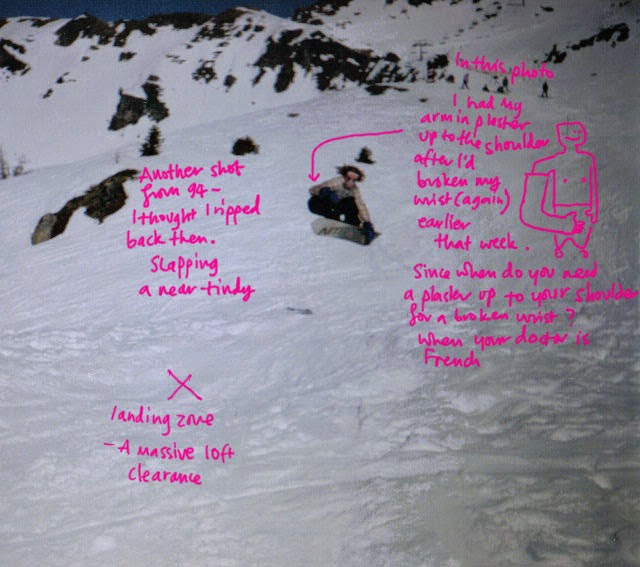 Another shot
from 94 -
I thought I ripped
back then.
Slapping
a near-tindy
In this photo
I had my
arm in plaster
up to the shoulder
after I'd
broken my
wrist (again)
earlier
that week.
Since when do you need
a plaster up to your shoulder
for a broken wrist?
When your doctor is
French
landing zone
- A massive 10ft
clearance